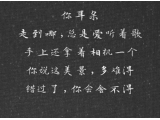 你耳朵
走到哪,总是爱听着歌
手上还拿着相机一个
你说这美景,多难得
错过了,你会舍不得